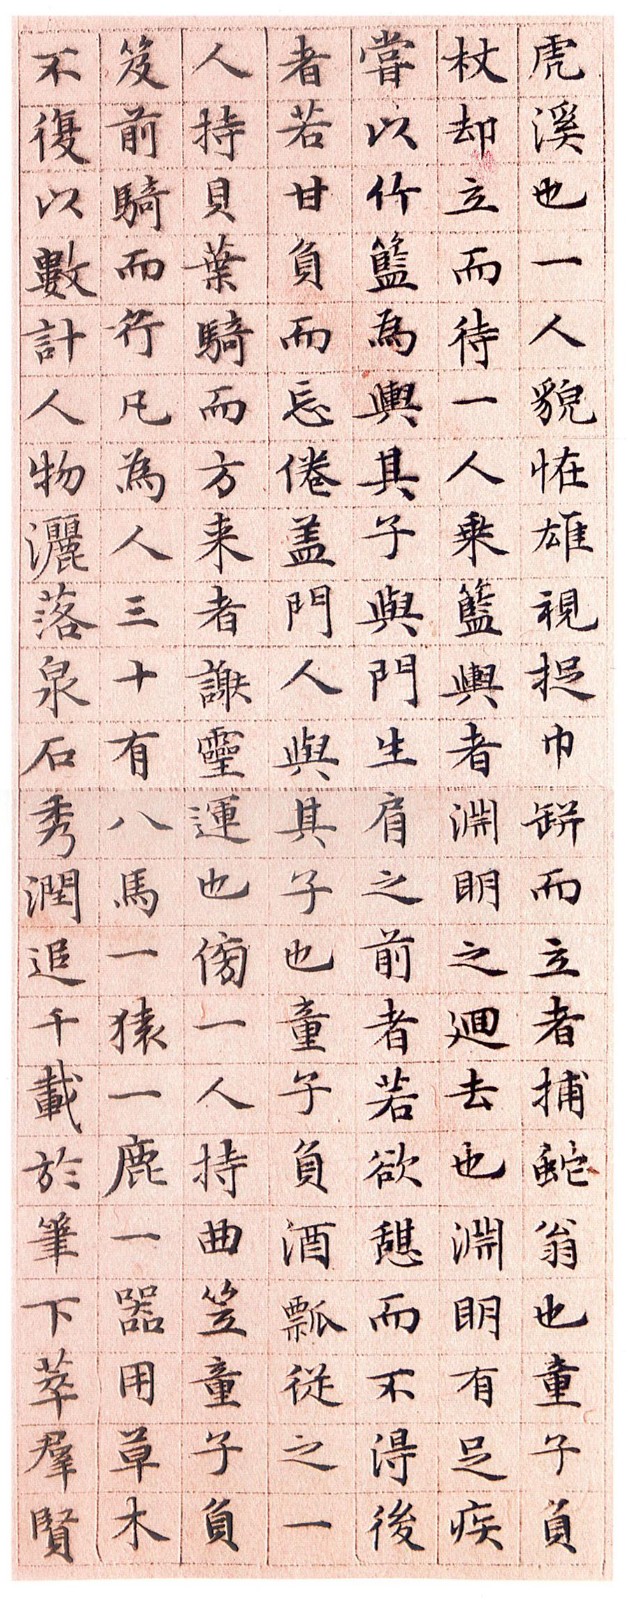 虎溪也一人貌恠雄視捉巾缾而立者捕蛇翁也童子負
杖却立而待一人乗籃輿者淵明之迴去也淵明有足疾
嘗以竹籃為輿其子與門生肩之前者若欲憇而不淂後
者若甘負而忘倦盖門人與其子也童子負酒瓢從之一
人持貝葉騎而方来者謝靈運也傍一人持曲笠童子負
笈前騎而行凡為人三十有八馬一猿一鹿一器用草木
不復以數計人物灑落泉石秀潤追千載於筆下萃羣賢